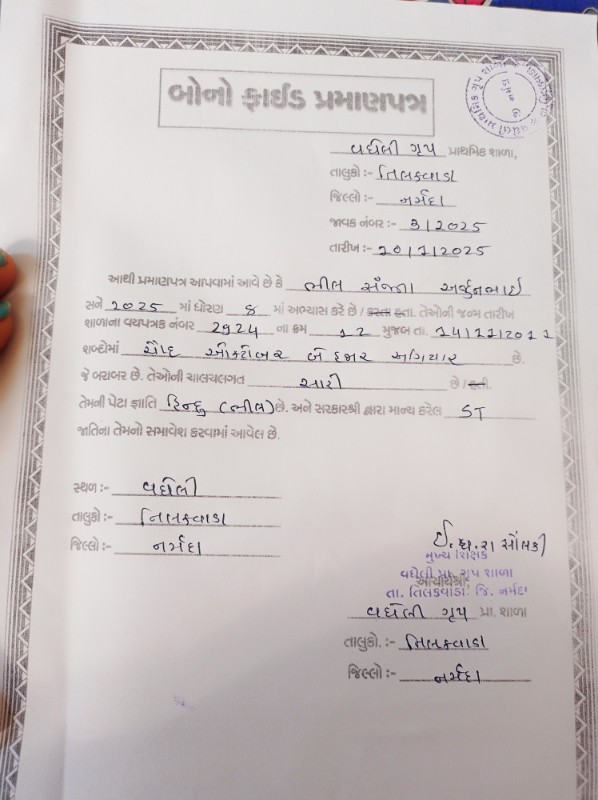 બોનો ફાઈડ પ્રમાણપત્ર
વઘેલી ગૃપ પ્રાથમિક શાળા,
તાલુકો :- તિલકવાડા
જિલ્લો :- નર્મદા
જાવક નંબર :- 3/2025
તારીખ :- 20/1/2025
આથી પ્રમાણપત્ર આપવામાં આવે છે કે ભીલ સંજના અર્જુનભાઈ
સને 2025 માં ધોરણ 8 માં અભ્યાસ કરે છે / કરતા હતા. તેઓની જન્મ તારીખ
શાળાના વયપત્રક નંબર 2924 ના ક્રમ 12 મુજબ તા. 14/11/2011
શબ્દોમાં ચૌદ ઓક્ટોબર બે હજાર અગિયાર છે.
જે બરાબર છે. તેઓની ચાલચલગત સારી છે / હતી.
તેમની પેટા જ્ઞાતિ હિન્દુ (ભીલ) છે. અને સરકારશ્રી દ્વારા માન્ય કરેલ ST
જાતિના તેમનો સમાવેશ કરવામાં આવેલ છે.
સ્થળ :- વઘેલી
તાલુકો :- તિલકવાડા
જિલ્લો :- નર્મદા
મુખ્ય શિક્ષક
વઘેલી પ્રા. ગૃપ શાળા
આચાર્યશ્રી
તા. તિલકવાડા. જિ. નર્મદા
વઘેલી ગૃપ પ્રા. શાળા
તાલુકો. :- તિલકવાડા
જિલ્લો :- નર્મદા